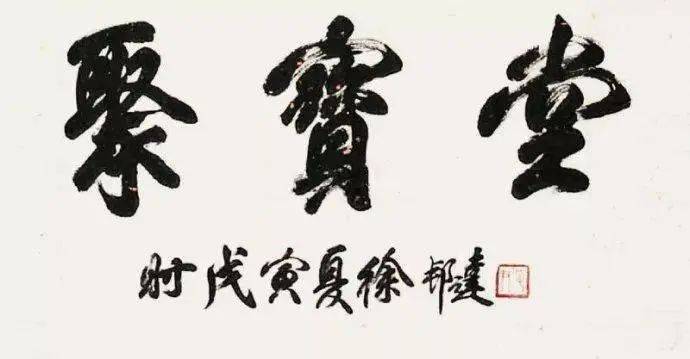 聚寶堂
时戊寅夏徐邦達